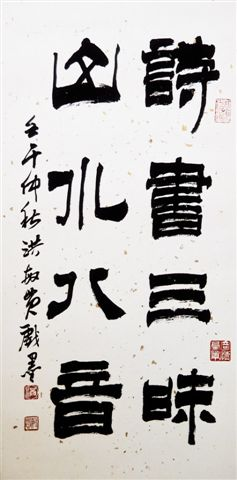 詩書三味
山水八音
壬午仲秋洪敏黄戲墨